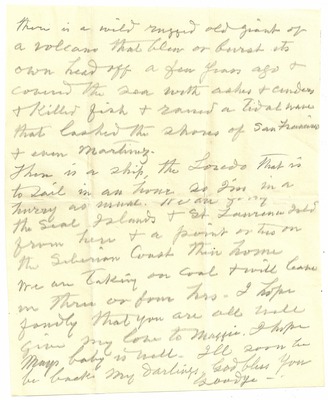 There is a wild rugged old giant of
a volcano that blew or burst its
own head off a few years ago &
covered the sea with ashes & cinders
& killed fish & raised a tidal wave
that lashed the shores of San Francisco
& even Martinez.
There is a ship, the Loredo that is
to sail in an hour. So I'm in a
hurry as usual. We are going
the Seal Islands & St Lawrence Isl'd
from here & a point or two on
the Siberian Coast then home
We are taking on coal & will leave
in three or four hrs. I hope
fondly that you are all well
Give my love to Maggie. I hope
Mays baby is well. I'll soon be
be back my Darlings, God bless you
Goodbye —